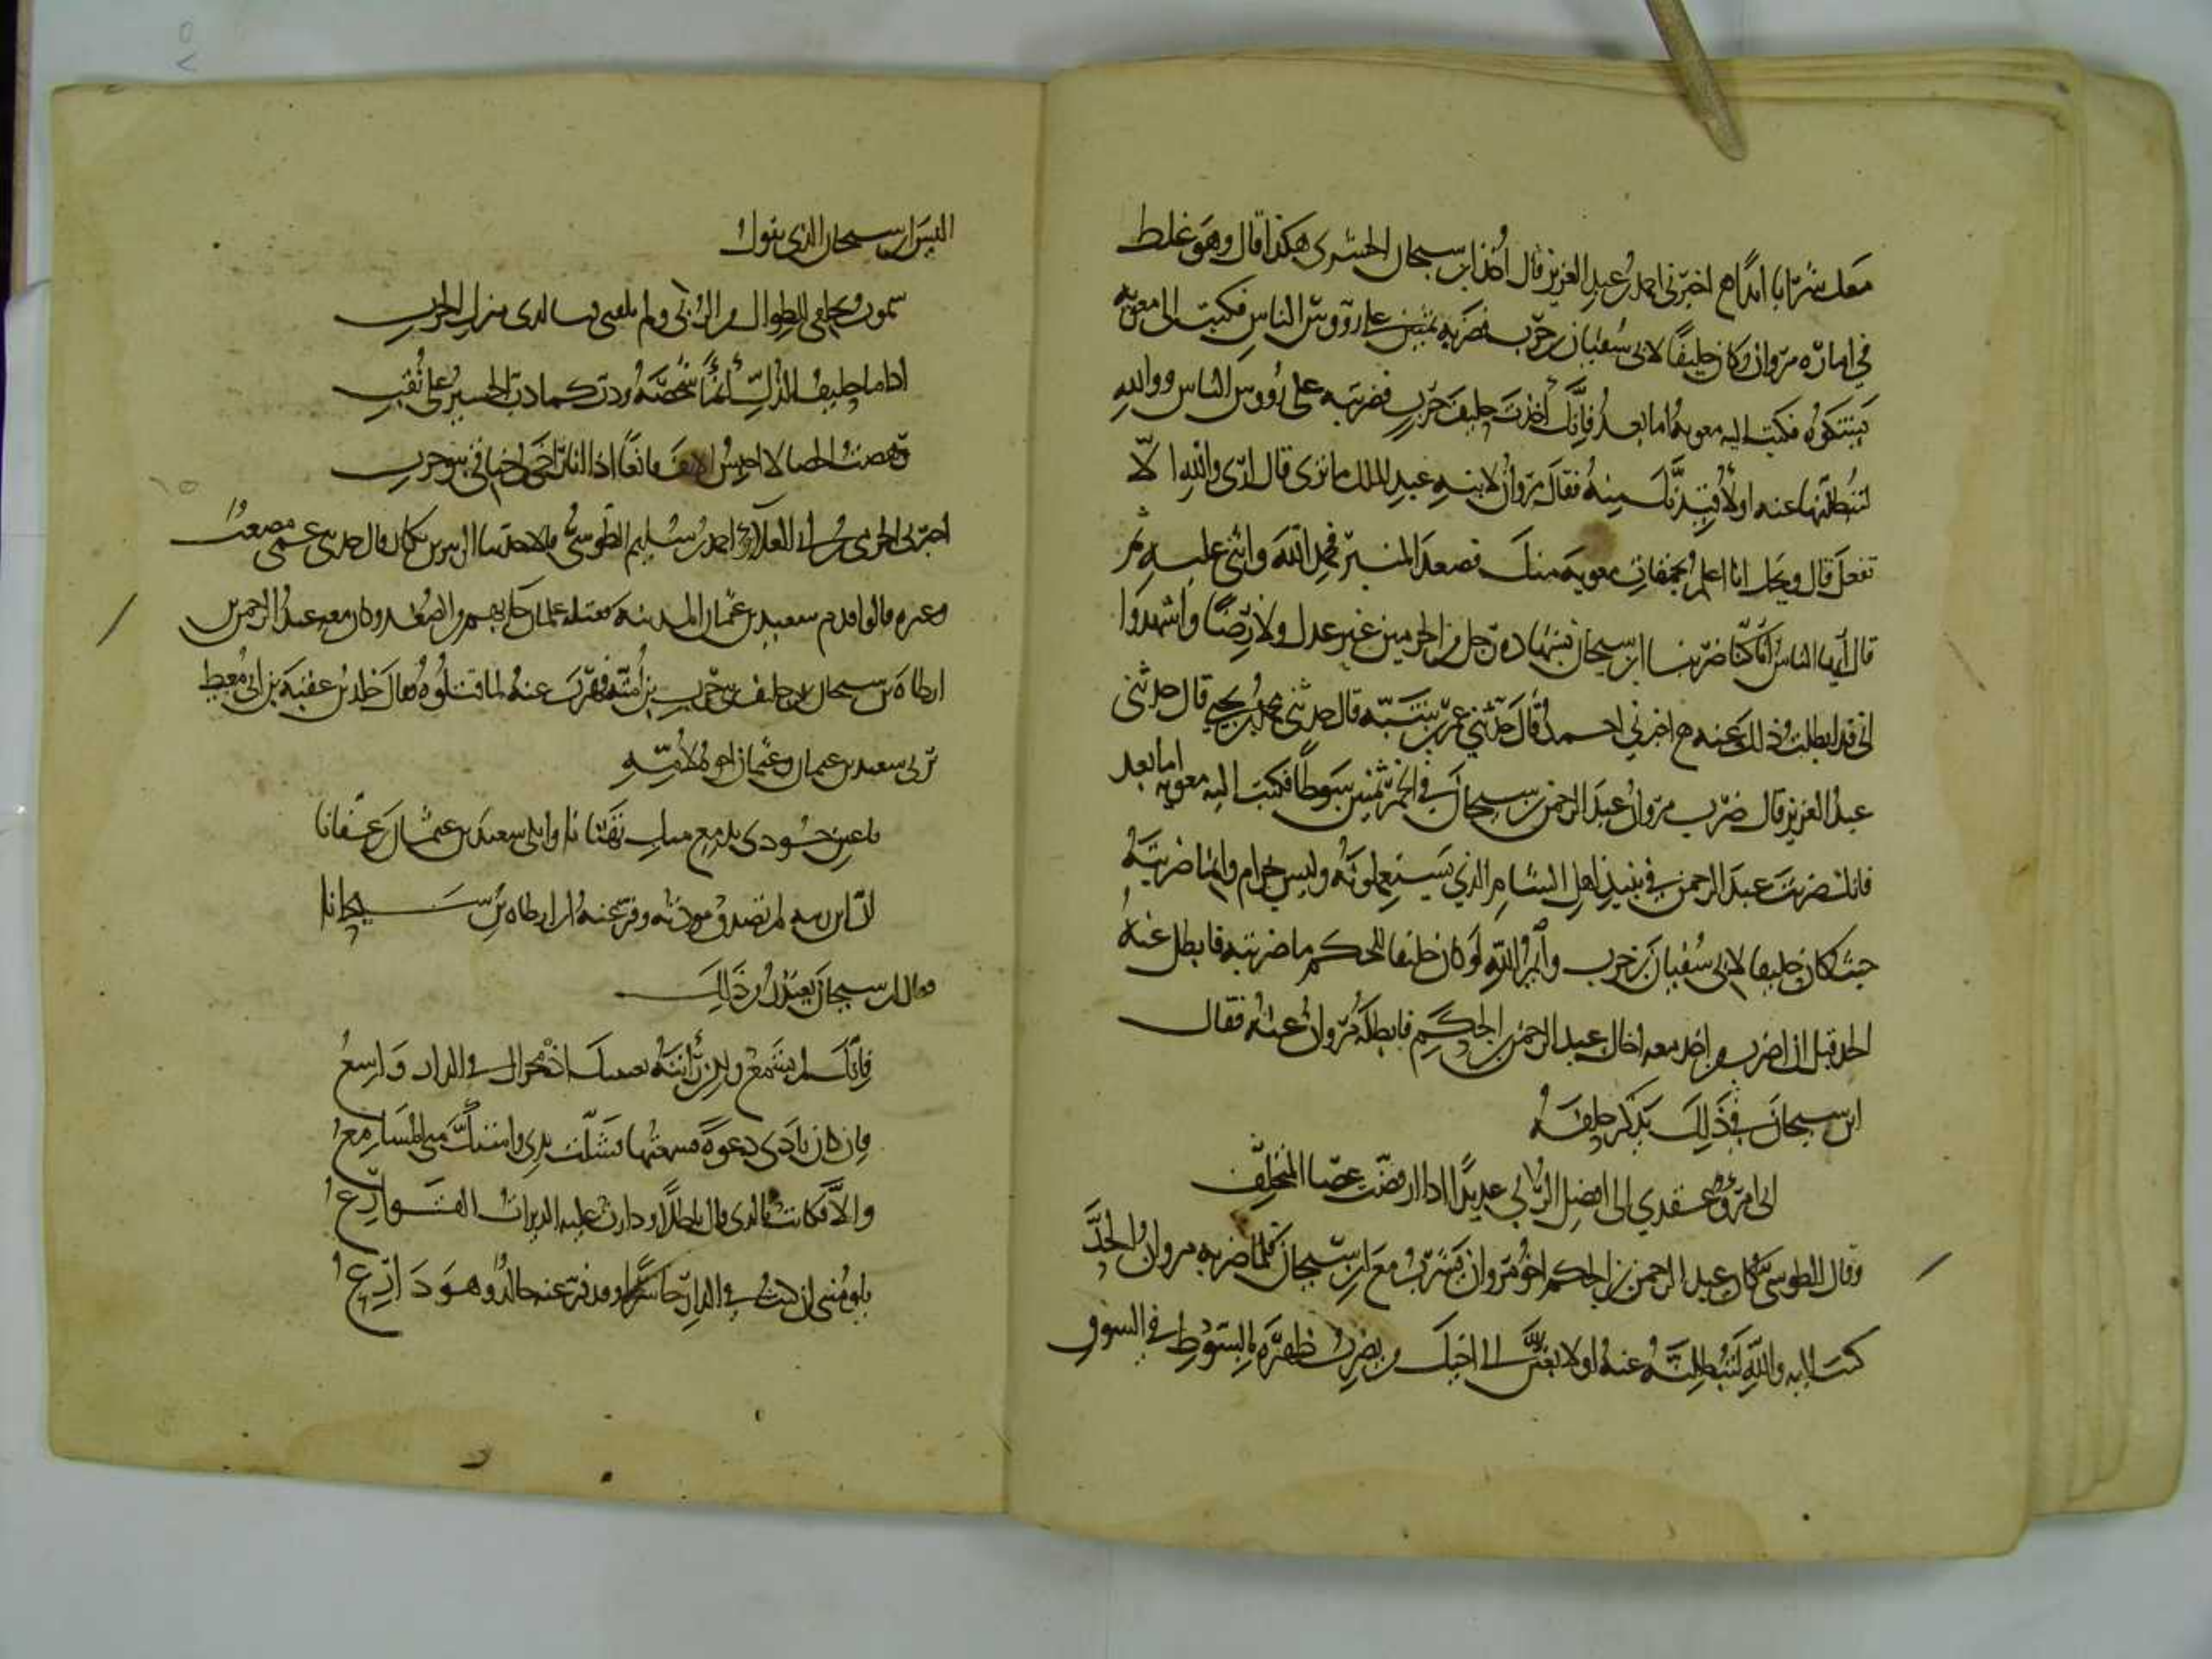 معك شرابا ابدا ح اخبرني احمد بن عبد العزيز قال اخذ ابن سيحان الجسري هكذا قال وهو غلط
في امارة مروان وكان حليفا لابي سفيان بن حرب فضربه ثمنين على رووس الناس فكتب الى معوية
يشكوه فكتب اليه معوية اما بعد فانك اخذت حليف حرب فضربته على رووس الناس ووالله
لتبطلنها عنه او لاقيدنك منه فقال مروان لابنه عبد الملك ما ترى قال ارى والله الا
تفعل قال ويحك انا اعلم بعزمات معوية منك فصعد المنبر فحمد الله واثنى عليه ثم
قال ايها الناس انا كنا ضربنا ابن سيحان بشهادة رجل من الحرس غير عدل ولا رضا واشهدوا
اني قد ابطلت ذلك عنه ح اخبرني احمد قال حدثني عمر بن شبة قال حدثني محمد بن يحيى قال حدثني
عبد العزيز قال ضرب مروان عبد الرحمن بن سيحان في الخمر ثمنين سوطا فكتب اليه معوية اما بعد
فانك ضربت عبد الرحمن في نبيذ اهل الشام الذي يستعملونه وليس بحرام وانما ضربته
حيث كان حليفا لابي سفيان بن حرب وايم الله لو كان حليفا للحكم ما ضربته فابطل عنه
الحد قبل ان اضرب من اخذ معه اخاك عبد الرحمن بن الحكم فابطله مروان عنه فقال
ابن سيحان في ذلك يذكر حلفه
اني امرؤ عقدي الى افضل الربى عديدا اذا ارفضت عصا المتحلف
وقال الطوسي كان عبد الرحمن بن الحكم اخو مروان يشرب مع ابن سيحان فلما ضربه مروان الحد
كتب اليه والله لتبطلنه عنه او لابعثن الى اخيك من يضرب ظهره بالسوط في السوق
اليس ابن سيحان الذي يقول
سموت بحلفي للطوال من الربى ولم تلقني لدى مبرك الجرب
اذا ما حليف الذل اقما شخصه ودب كما دب الحسير على نقب
وهصت الحصا لا اخنس الانف قابعا اذا انا راخى لي خناقي بنو حرب
اخبرني الحرمي بن ابي العلاء واحمد بن سليم الطوسي قالا حدثنا الزبير بن بكار قال حدثني عمي مصعب
وغيره قالوا قدم سعيد بن عثمان المدينة فقتله غلمان جاء بهم من الصغد وكان معه عبد الرحمن بن
ارطاة بن سيحان حليف بني حرب بن امية فهرب عنه لما قتلوه فقال خلد بن عقبة بن ابي معيط
يرثي سعيد بن عثمان وعثمان اخوه لامه
يا عين جودي بدمع منك تهتانا وابكي سعيد بن عثمان بن عفانا
ان ابن زينة لم تصدق مودته وفر عنه ابن ارطاة بن سيحانا
فقال ابن سيحان يعتذر من ذلك
فانك لم تسمع ولكن رأيته بعينيك اذ مجراك في الدار واسع
فان كان نادى دعوة فسمعتها فشلت يدي واستك مني المسامع
والا فكانت بالذي قال باطلا ودارت عليه الدايرات القوارع
يلومونني ان كنت في الدار حاسرا وقد فر عنه خالد وهو دارع